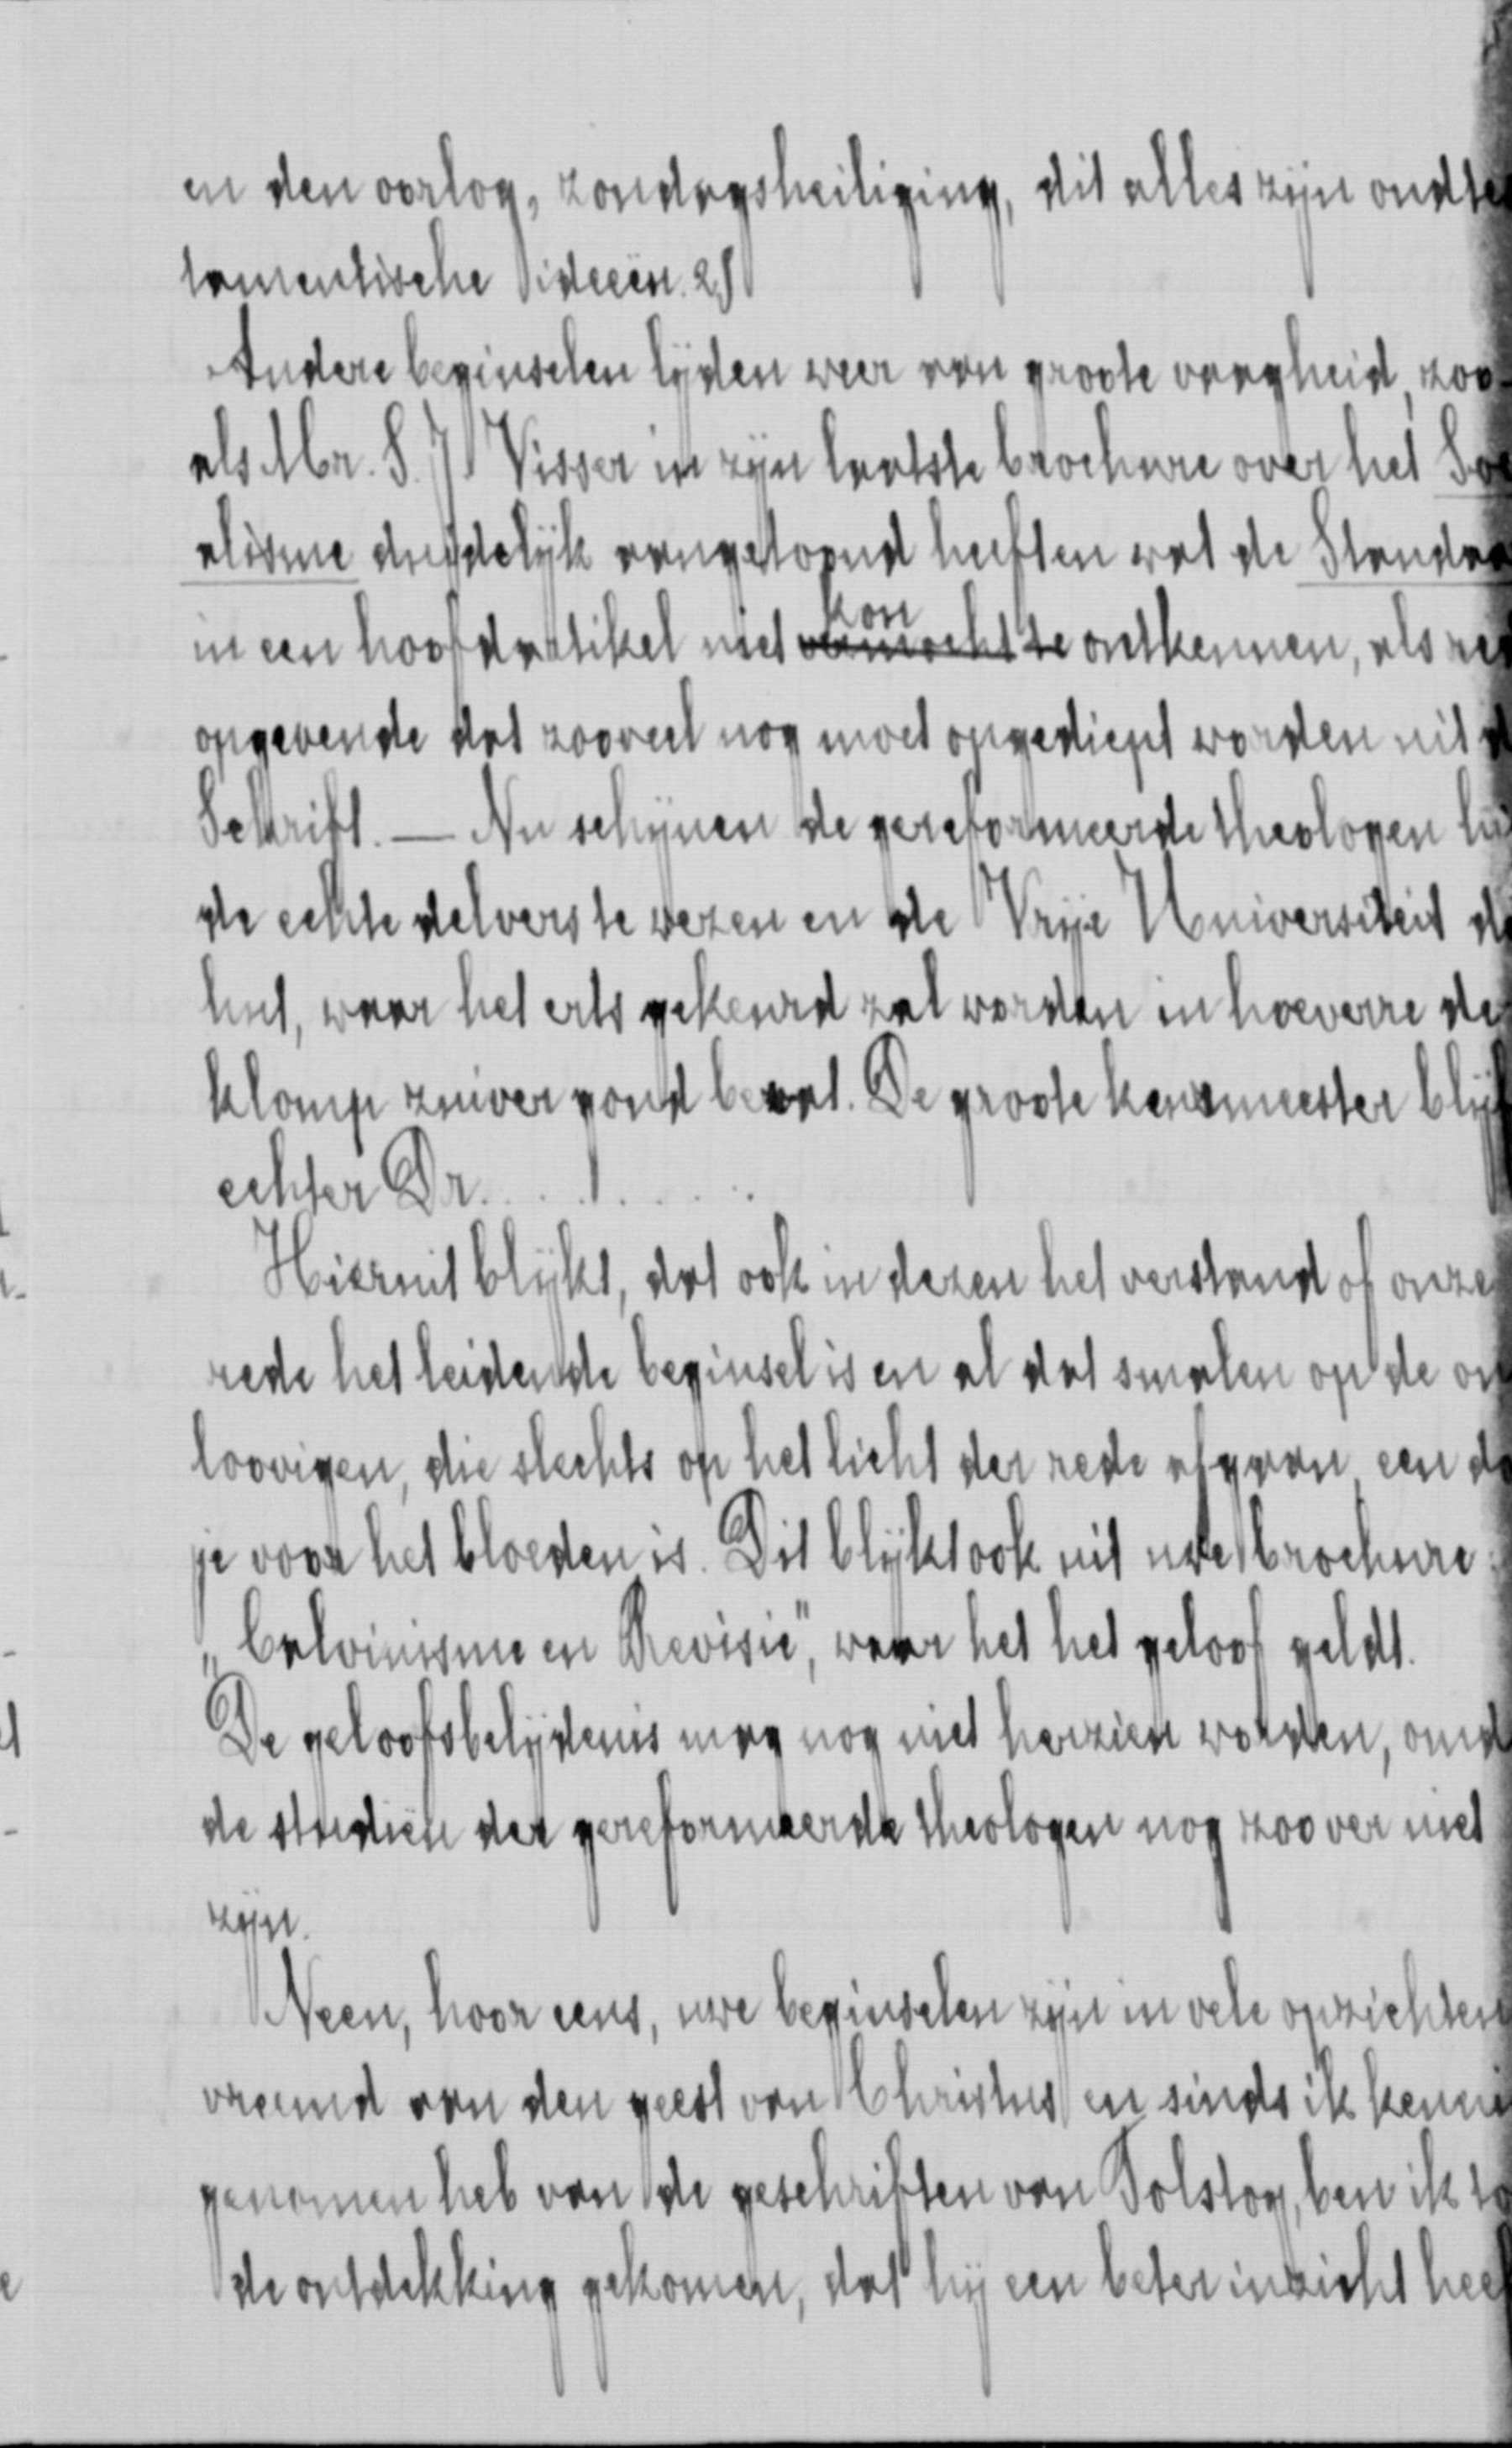 en den oorlog, zondagsheiliging, dit alles zijn oudte
tamentische ideeën. 2)
Andere beginselen lijden weer aan groote vaagheid, zoo-
als Mr. S. J. Visser in zijn laatste brochure over het Soc
alisme duidelijk aangetoond heeft en wat de Standaa
in een hoofdartikel niet kon vermocht te ontkennen, als red
opgevende dat zooveel nog moet opgediept worden uit d
Schrift. — Nu schijnen de gereformeerde theologen hi
de echte delvers te wezen en de Vrije Universiteit de
hut, waar het erts gekeurd zal worden in hoeverre de
klomp zuiver goud bevat. De groote keurmeester blijf
echter Dr. . . . . . . . .
Hieruit blijkt, dat ook in dezen het verstand of onze
rede het leidende beginsel is en al dat smalen op de on
loovigen, die slechts op het licht der rede afgaan, een do
je voor het bloeden is. Dit blijkt ook uit uwe brochure:
„Calvinisme en Revisie", waar het het geloof geldt.
De geloofsbelijdenis mag nog niet herzien worden, omd
de studiën der gereformeerde theologen nog zoo ver niet
zijn.
Neen, hoor eens, uwe beginselen zijn in vele opzichten
vreemd aan den geest van Christus en sinds ik kenni
genomen heb van de geschriften van Tolstoy, ben ik to
de ontdekking gekomen, dat hij een beter inzicht heef